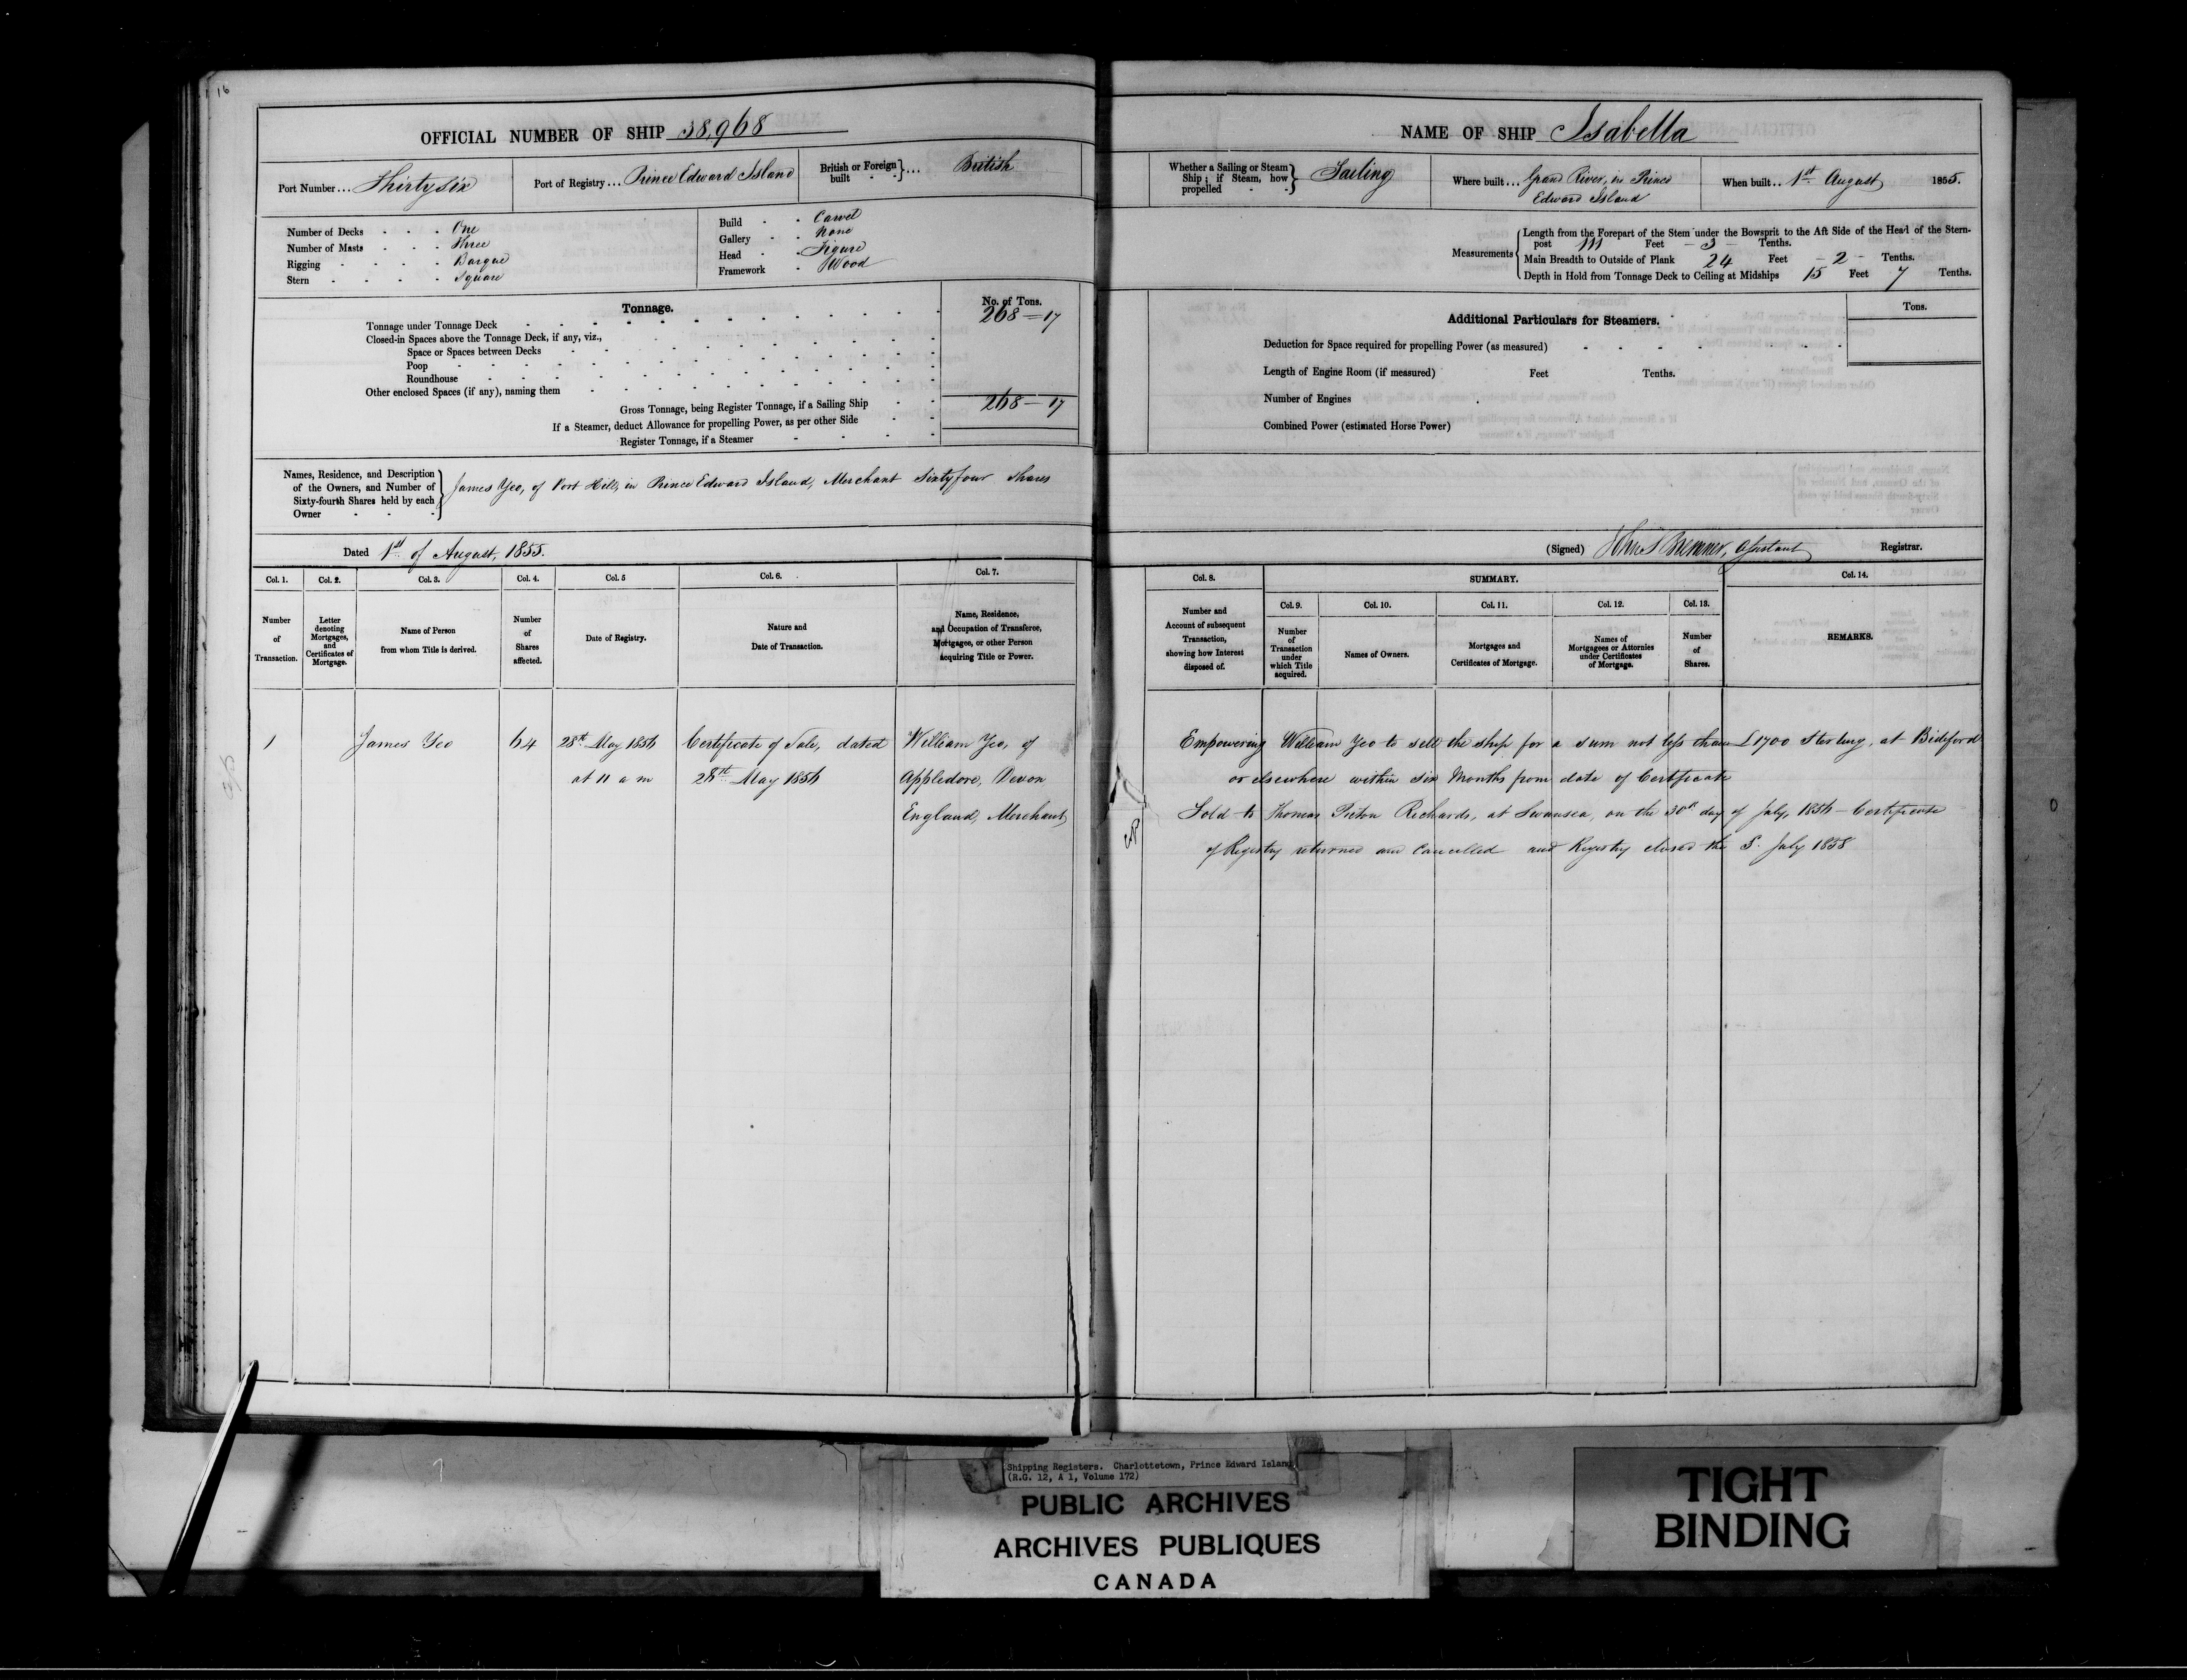 16
OFFICIAL NUMBER OF SHIP 38,968
Port Number... Thirty six
Port of Registry... Prince Edward Island
British or Foreign built - - }... British
Number of Decks - - - One
Number of Masts - - - Three
Rigging - - - - Barque
Stern - - - - Square
Build - - Carvel
Gallery - - None
Head - - Figure
Framework - Wood
Tonnage.
No. of Tons.
Tonnage under Tonnage Deck 268 – 17
Closed-in Spaces above the Tonnage Deck, if any, viz.,
Space or Spaces between Decks
Poop
Roundhouse
Other enclosed Spaces (if any), naming them
Gross Tonnage, being Register Tonnage, if a Sailing Ship 268 – 17
If a Steamer, deduct Allowance for propelling Power, as per other Side
Register Tonnage, if a Steamer
Names, Residence, and Description
of the Owners, and Number of
Sixty-fourth Shares held by each
Owner
James Yeo, of Port Hill, in Prince Edward Island, Merchant Sixty four Shares
Dated 1st of August, 1855.
Col. 1.
Number
of
Transaction.
Col. 2.
Letter
denoting
Mortgages,
and
Certificates of
Mortgage.
Col. 3.
Name of Person
from whom Title is derived.
Col. 4.
Number
of
Shares
affected.
Col. 5
Date of Registry.
Col. 6.
Nature and
Date of Transaction.
Col. 7.
Name, Residence,
and Occupation of Transferee,
Mortgagee, or other Person
acquiring Title or Power.
1
James Yeo
64
28th May 1856
at 11 a m
Certificate of Sale, dated
28th May 1856
William Yeo, of
Appledore, Devon
England, Merchant
NAME OF SHIP Isabella
Whether a Sailing or Steam
Ship; if Steam, how
propelled - - } Sailing
Where built... Grand River, in Prince
Edward Island
When built.. 1st August 1855.
Measurements
Length from the Forepart of the Stem under the Bowsprit to the Aft Side of the Head of the Stern-
post 111 Feet – 3 – Tenths.
Main Breadth to Outside of Plank 24 Feet – 2 – Tenths.
Depth in Hold from Tonnage Deck to Ceiling at Midships 15 Feet 7 Tenths.
Additional Particulars for Steamers.
Tons.
Deduction for Space required for propelling Power (as measured)
Length of Engine Room (if measured) Feet Tenths.
Number of Engines
Combined Power (estimated Horse Power)
(Signed) John S Bremner, Assistant Registrar.
Col. 8.
Number and
Account of subsequent
Transaction,
showing how Interest
disposed of.
SUMMARY.
Col. 9.
Number
of
Transaction
under
which Title
acquired.
Col. 10.
Names of Owners.
Col. 11.
Mortgages and
Certificates of Mortgage.
Col. 12.
Names of
Mortgagees or Attornies
under Certificates
of Mortgage.
Col. 13.
Number
of
Shares.
Col. 14.
REMARKS.
Empowering William Yeo to sell the ship for a sum not less than £1700 Sterling, at Bideford
or elsewhere within six Months from date of Certificate
Sold to Thomas Picton Richards, at Swansea, on the 30th day of July, 1856 – Certificate
of Registry returned and Cancelled and Registry closed the 5. July 1858
Shipping Registers. Charlottetown, Prince Edward Island
(R.G. 12, A 1, Volume 172)
PUBLIC ARCHIVES
ARCHIVES PUBLIQUES
CANADA
TIGHT
BINDING